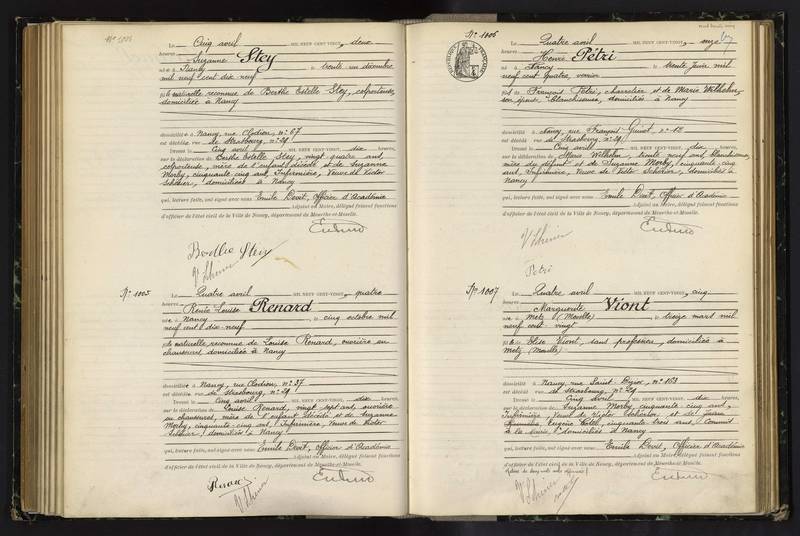 Nº 1004
Le Cinq avril MIL NEUF CENT-VINGT, deux
heures, Suzanne Stey
née à Nancy le trente un décembre
mil neuf cent dix neuf
fille naturelle reconnue de Berthe Estelle Stey, colporteuse,
domiciliée à Nancy
domiciliée à Nancy, rue Clodion, nº 67
est décédée rue de Strasbourg, nº 29
Dressé le Cinq avril MIL NEUF CENT-VINGT, dix heures,
sur la déclaration de Berthe Estelle Stey, vingt quatre ans,
colporteuse, mère de l'enfant décédé et de Suzanne
Morby, cinquante cinq ans, Infirmière, Veuve de Victor
Schérier, domiciliées à Nancy
qui, lecture faite, ont signé avec nous Emile Devit, Officier d'Académie
Adjoint au Maire, délégué faisant fonctions
d'officier de l'état civil de la Ville de Nancy, département de Meurthe-et-Moselle.
Berthe Stey
Nº 1005
Le Quatre avril MIL NEUF CENT-VINGT, quatre
heures, Renée Louise Renard
née à Nancy le cinq octobre mil
neuf cent dix-neuf
fille naturelle reconnue de Louise Renard, ouvrière en
chaussures domiciliée à Nancy
domiciliée à Nancy, rue Clodion, nº 37
est décédée rue de Strasbourg, nº 29
Dressé le Cinq avril MIL NEUF CENT-VINGT, dix heures,
sur la déclaration de Louise Renard, vingt sept ans, ouvrière
en chaussures, mère de l'enfant décédé et de Suzanne
Morby, cinquante-cinq ans, Infirmière, Veuve de Victor
Schérier, domiciliées à Nancy
qui, lecture faite, ont signé avec nous Emile Devit, Officier d'Académie
Adjoint au Maire, délégué faisant fonctions
d'officier de l'état civil de la Ville de Nancy, département de Meurthe-et-Moselle.
Nº 1006
Le Quatre avril MIL NEUF CENT-VINGT, onze
heures, Henri Pétri
né à Nancy le trente Juin mil
neuf cent quatre, vannier
fils de François Pétri, charretier et de Marie Wilhelm,
son épouse, blanchisseuse, domiciliés à Nancy
domicilié à Nancy, rue François Guinet, nº 12
est décédé rue de Strasbourg, nº 29
Dressé le Cinq avril MIL NEUF CENT-VINGT, dix heures,
sur la déclaration de Marie Wilhelm, trente neuf ans, blanchisseuse,
mère du défunt et de Suzanne Morby, cinquante cinq
ans, Infirmière, Veuve de Victor Schérier, domiciliées à
Nancy
qui, lecture faite, ont signé avec nous Emile Devit, Officier d'Académie
Adjoint au Maire, délégué faisant fonctions
d'officier de l'état civil de la Ville de Nancy, département de Meurthe-et-Moselle.
Petri
Nº 1007
Le Quatre avril MIL NEUF CENT-VINGT, cinq
heures, Marguerite Viont
née à Metz (Moselle) le treize mars mil
neuf cent vingt
fille de Elise Viont, sans profession, domiciliée à
Metz (Moselle)
domiciliée à Nancy, rue Saint Dizier, nº 103
est décédée rue de Strasbourg, nº 29
Dressé le Cinq avril MIL NEUF CENT-VINGT, dix heures,
sur la déclaration de Suzanne Morby cinquante cinq ans,
Infirmière, Veuve de Victor Schérier et de
Eugène cinquante trois ans, Commis
à la mairie, domiciliés à Nancy
qui, lecture faite, ont signé avec nous Emile Devit, Officier d'Académie
Adjoint au Maire, délégué faisant fonctions
d'officier de l'état civil de la Ville de Nancy, département de Meurthe-et-Moselle.